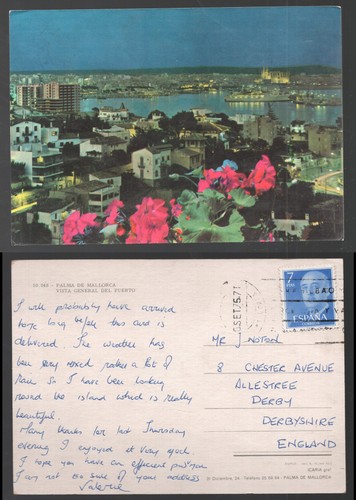 PALMA DE MALLORCA
VISTA GENERAL DEL PUERTO
I will probably have arrived
home long before this card is
delivered. The weather has
been very mixed, rather a lot of
rain. So I have been looking
round the island which is really
beautiful.
Many thanks for last Thursday
evening I enjoyed it very much.
I hope you have an efficient postman
I am not too sure of your address
Valerie
7
PTAS
CORREOS
ESPAÑA
SET.75
MR
8 CHESTER AVENUE
ALLESTREE
DERBY
DERBYSHIRE
ENGLAND
ICARIA
PALMA DE MALLORCA